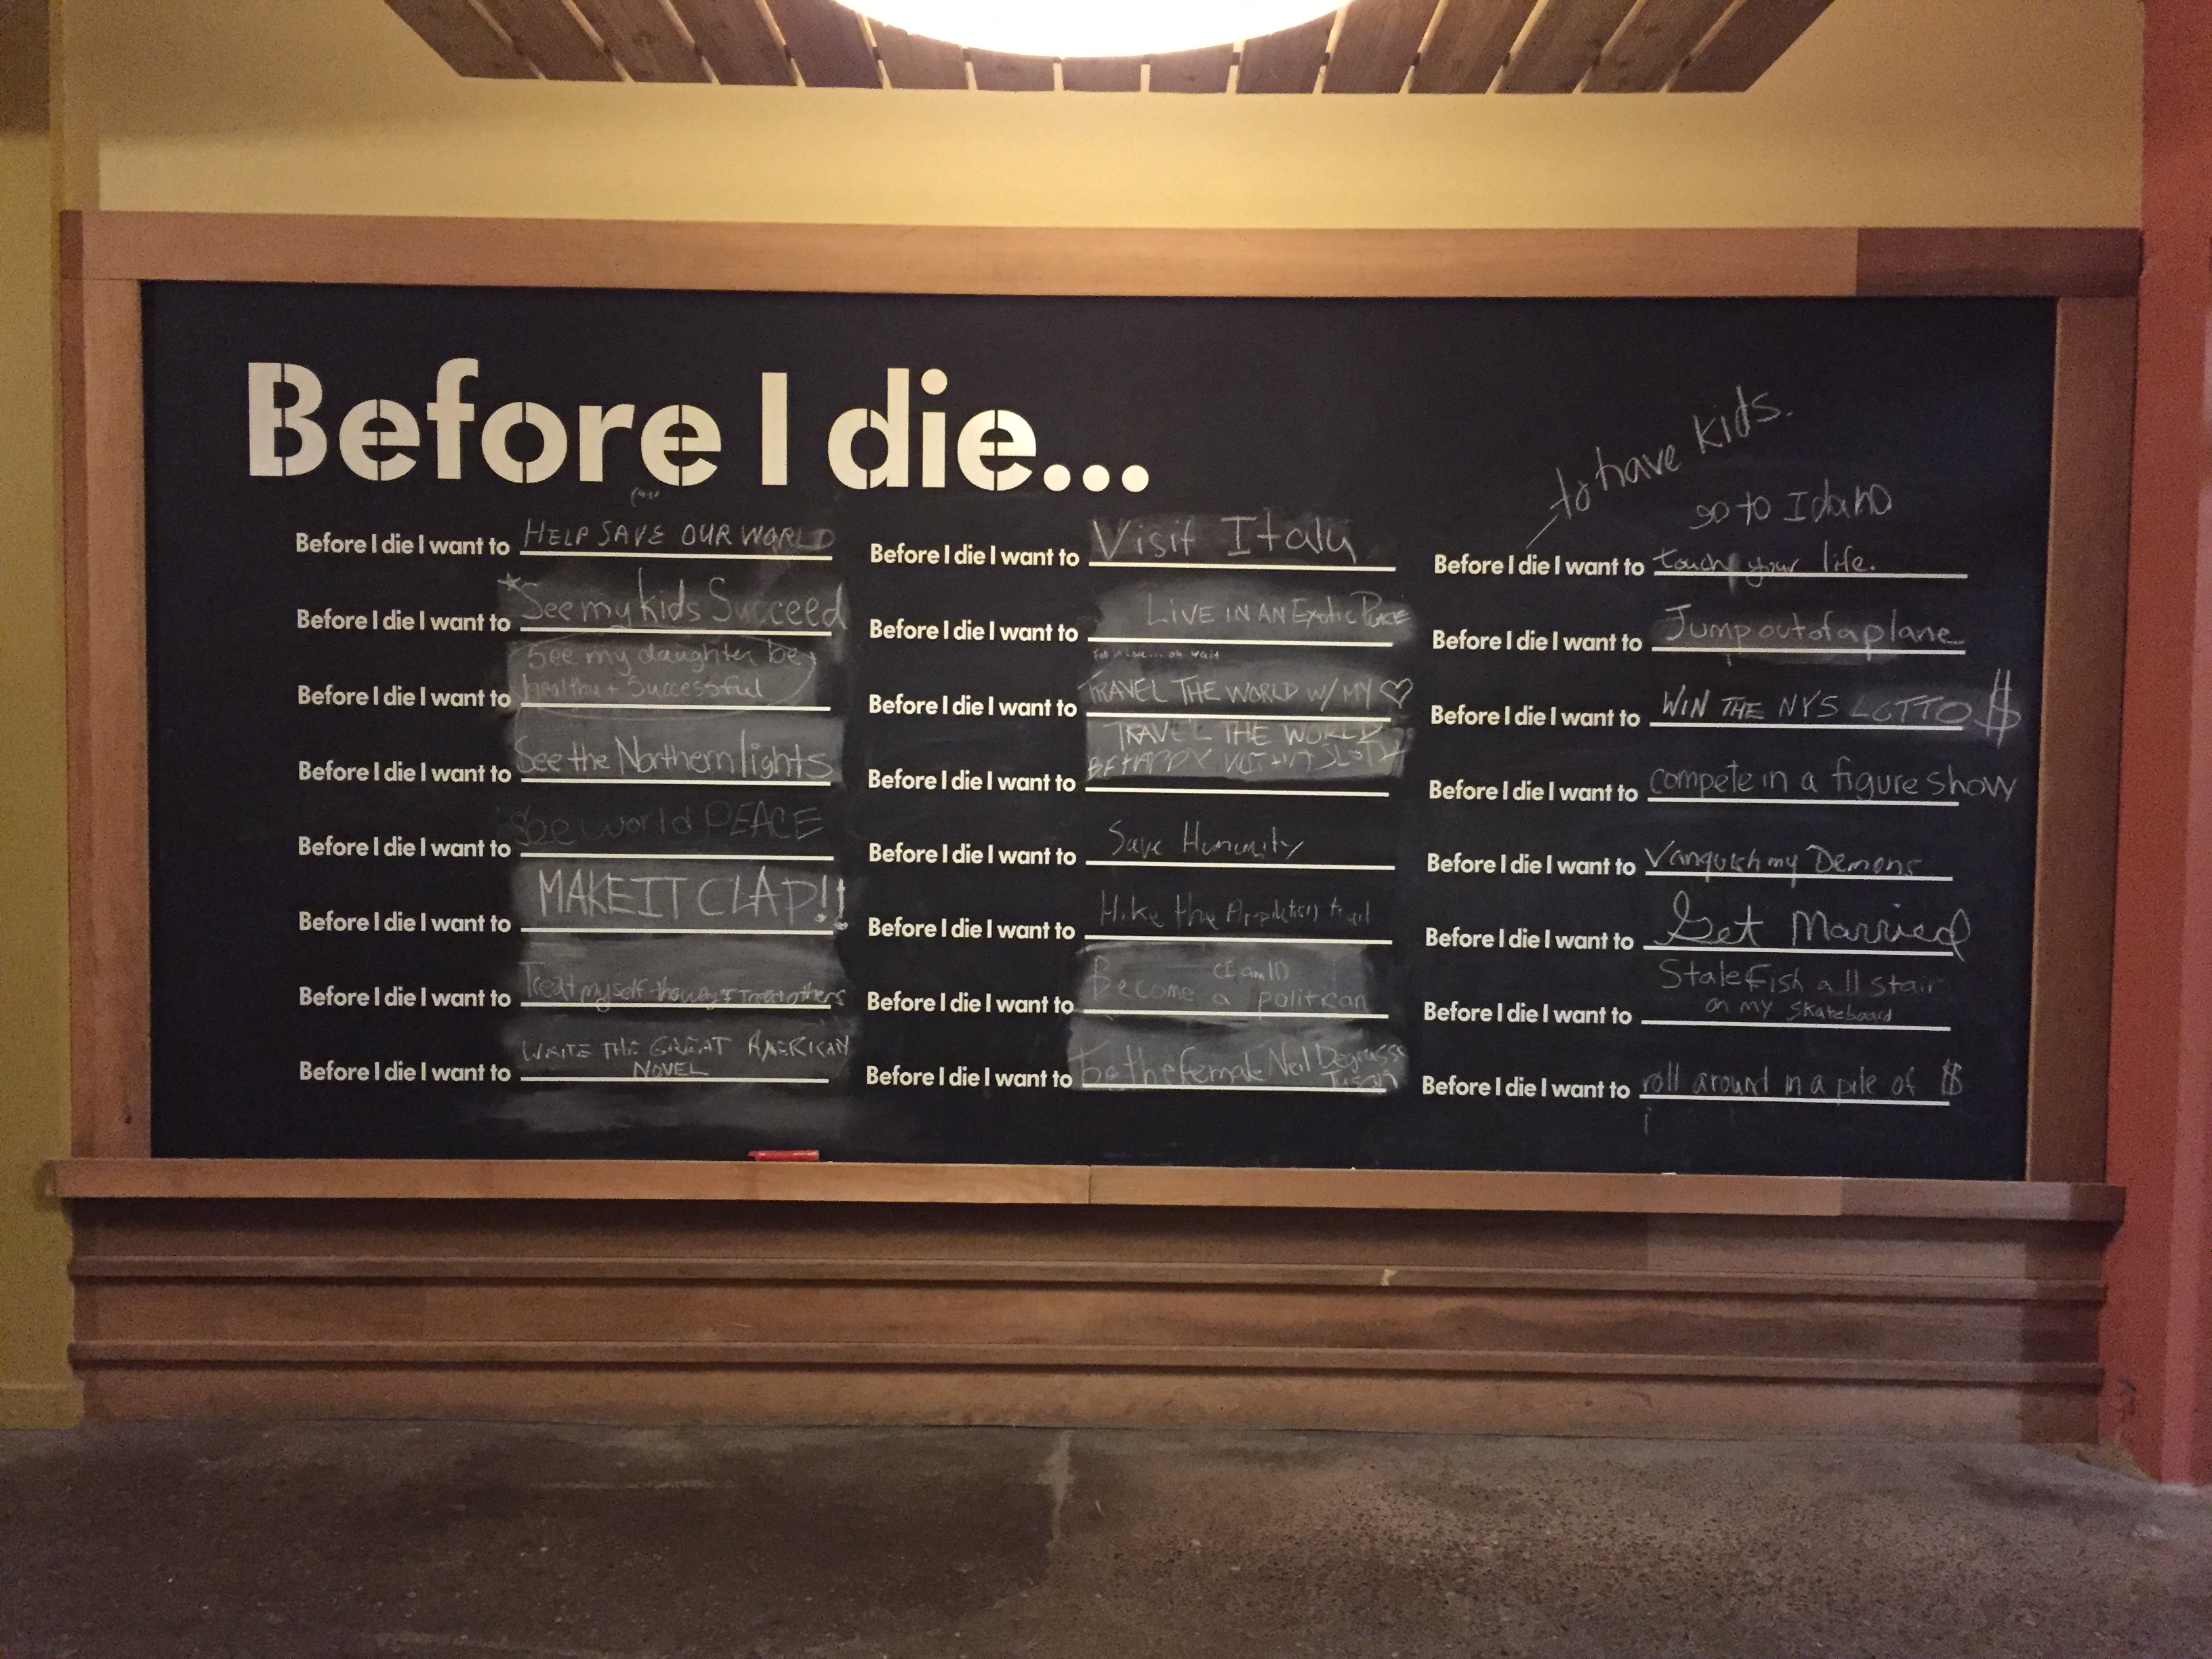 Before I die...
Before I die I want to HELP SAVE OUR WORLD
Before I die I want to *See my kids Succeed
Before I die I want to See my daughter be
healthy + Successful
Before I die I want to See the Northern lights
Before I die I want to See world PEACE
Before I die I want to MAKE IT CLAP!!
Before I die I want to Treat myself I Treat others
Before I die I want to WRITE THE GREAT AMERICAN
NOVEL
Before I die I want to Visit Italy
Before I die I want to LIVE IN AN Exotic
oh wait
Before I die I want to TRAVEL THE WORLD W/ MY ♡
Before I die I want to TRAVEL THE WORLD
BE HAPPY SLOTH
Before I die I want to Save Humanity
Before I die I want to Hike the trail
(I am 11)
Before I die I want to Become a
Before I die I want to be the female Neil Degrasse
to have kids.
go to Idaho
Before I die I want to touch your life.
Before I die I want to Jump out of a plane
Before I die I want to WIN THE NYS LOTTO $
Before I die I want to compete in a figure show
Before I die I want to Vanquish my Demons
Before I die I want to Get Married
Before I die I want to StaleFish a 11 stair
on my skateboard
Before I die I want to roll around in a pile of $